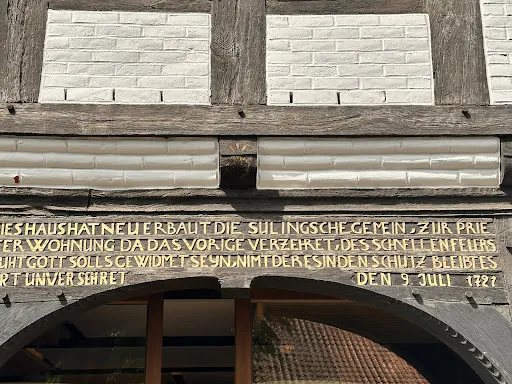 IES HAUS HAT NEU ERBAUT DIE SULINGSCHE GEMEIN, ZUR PRIE
ER WOHNUNG DA DAS VORIGE VERZEHRET, DES SCHNELLEN FEUERS
UHT GOTT SOLLS GEWIDMET SEYN, NIMT DER ES IN DEN SCHUTZ BLEIBT ES
RT UNVERSEHRET DEN 9. JULI